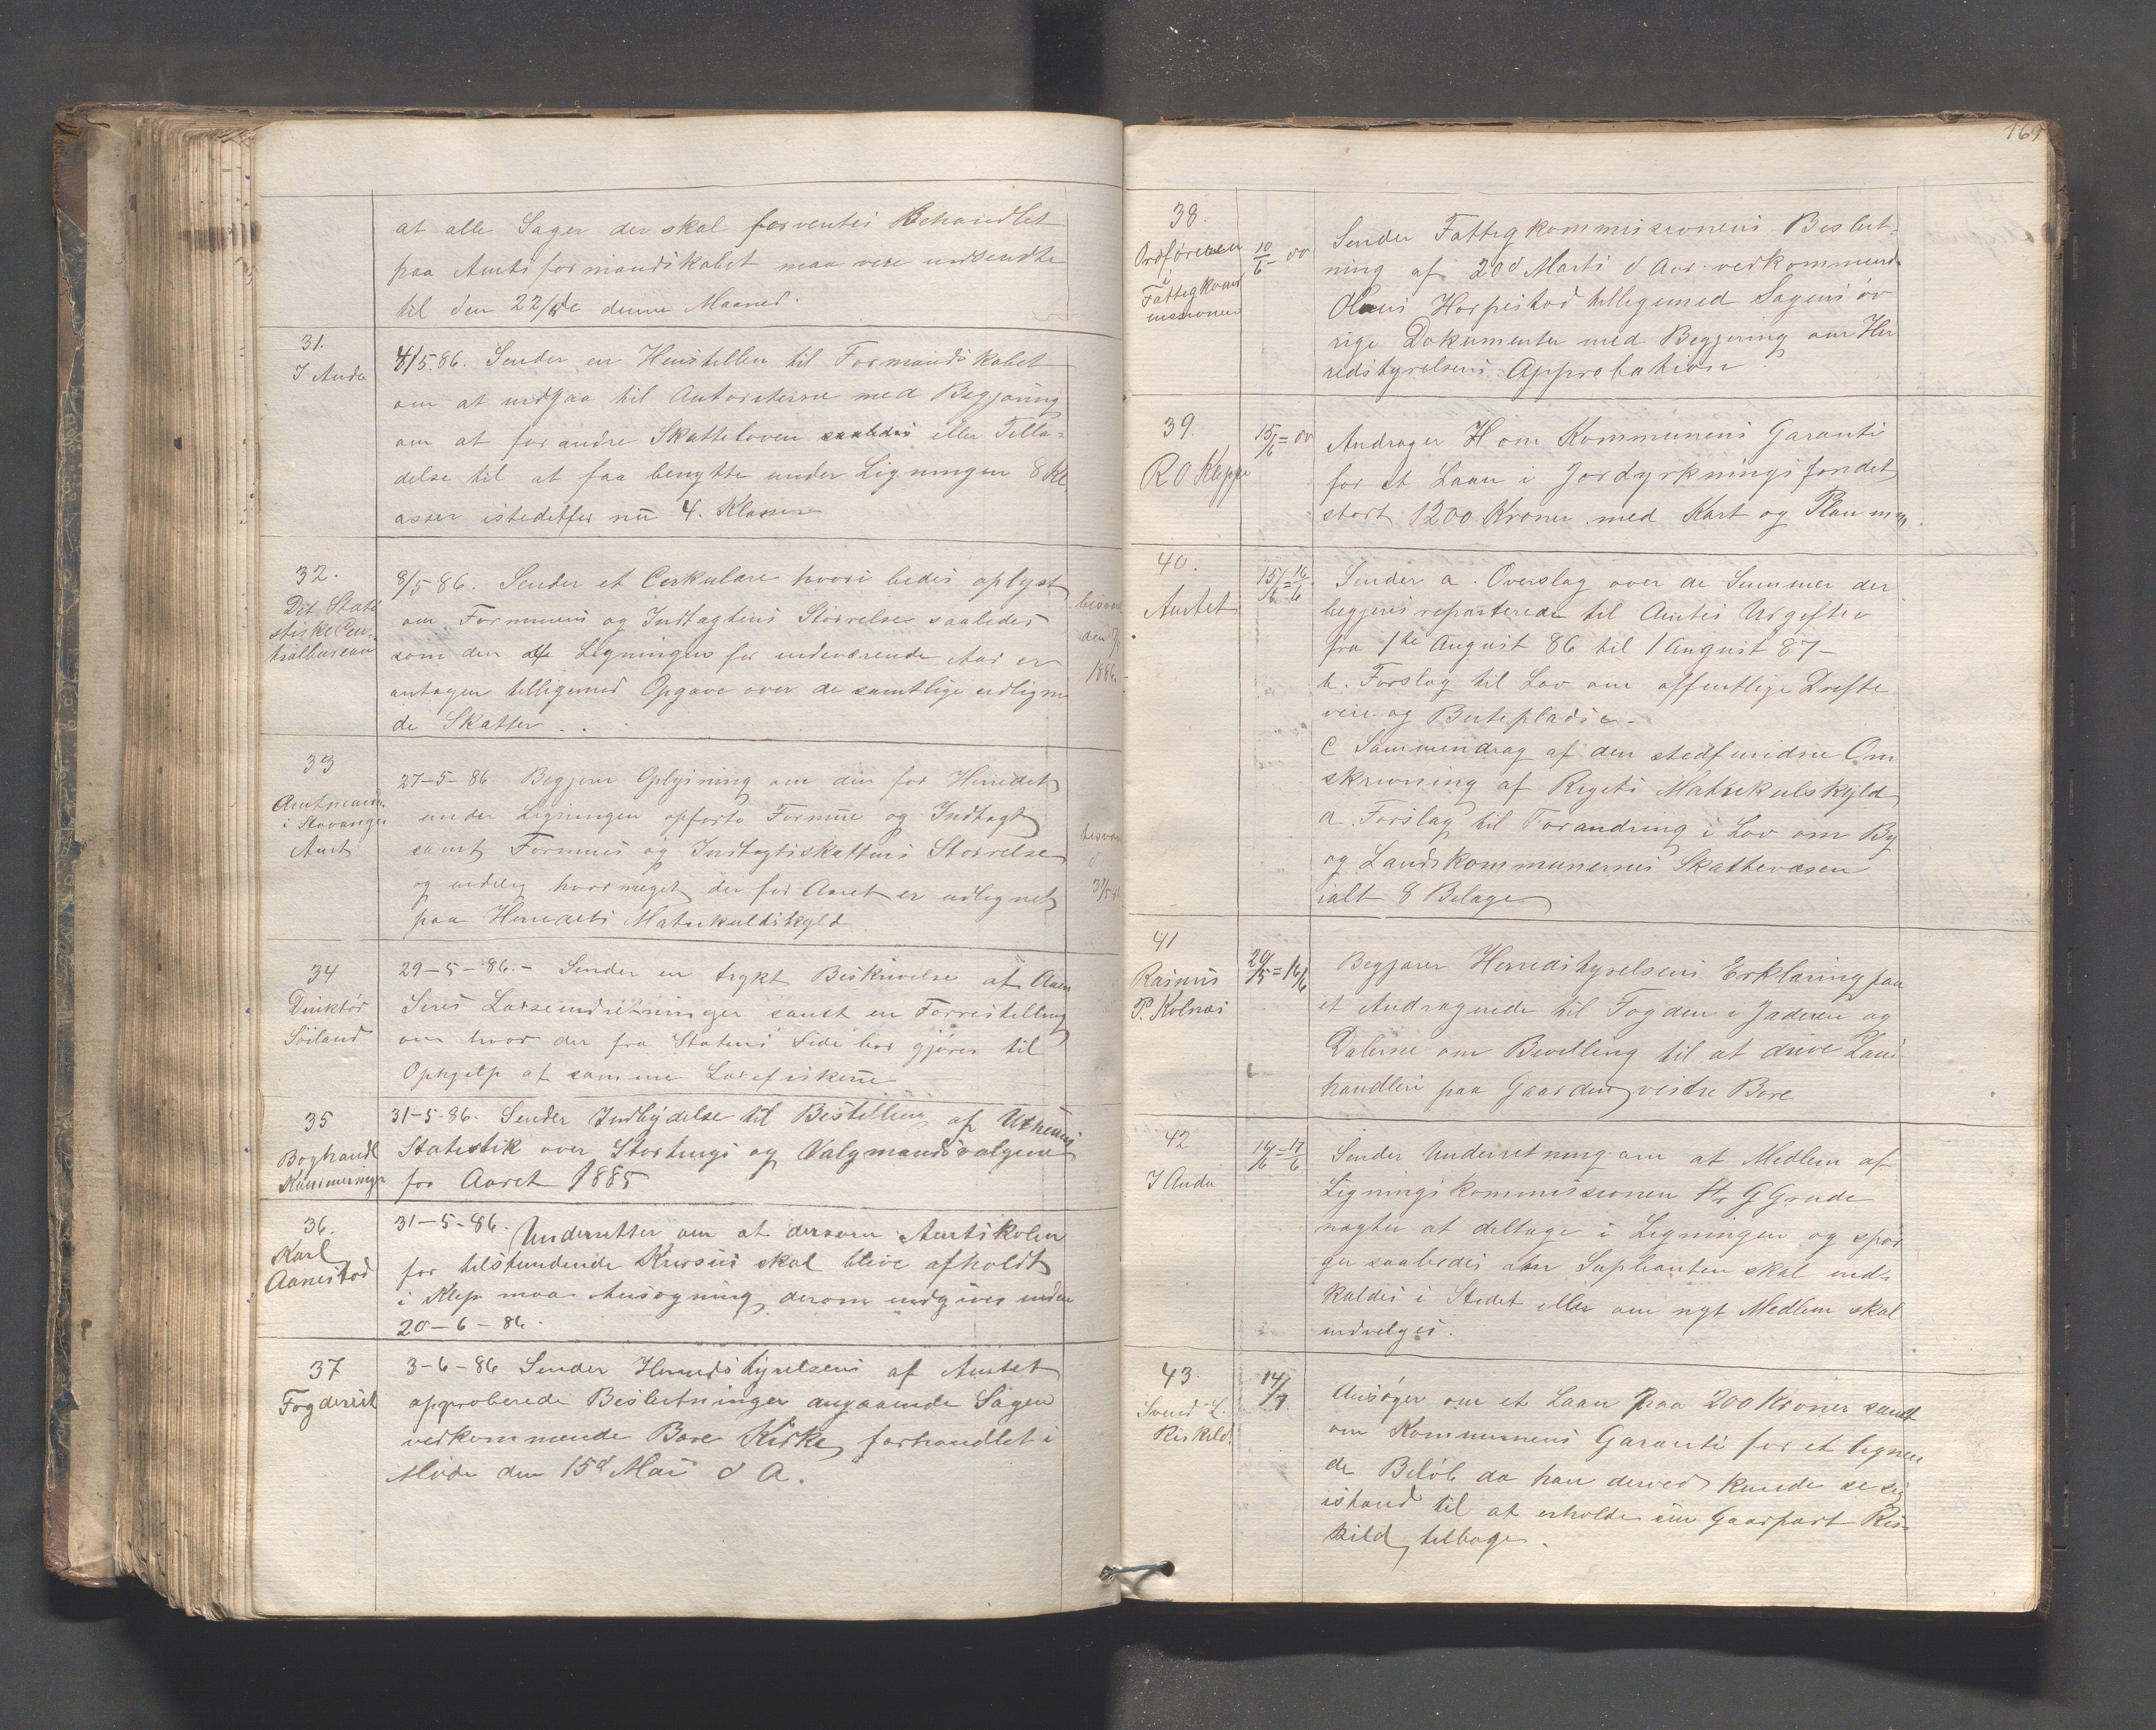 at alle Sager der skal forventes Behandlet
paa Amtsformandskabet maa vere indsendte
til den 22/5de denne Maaned.
31.
I Anda
8/5.86. Sender en Henstillen til Formandskabet
om at indgaa til Autoriterne med Begjæring
om at forandre Skatteloven saaledes eller Tilla=
delse til at faa benytte under Ligningen 8 Kl
asser istedetfor nu 4. Klasser
32.
Det Stati
stiske Cen-
tralbureau
8/5 86. Sender et Cirkulære hvori bedes oplyst
om Formuens og Indtægtens Størrelse saaledes
som den af Ligningen for indeværende Aar er
antagen tilligemed Opgave over de samtlige udlign
de Skatter.
besvar
den
1886
33
Amtmanden
i Stavanger
Amt
27-5-86 Begjærer Oplysning om den for Herredet
under Ligningen opførte Formue og Indtægt
samt Formues og Indtægtsskattens Størrelse
og endelig hvormeget der for Aaret er udlignet
paa Herredets Matrikulskyld
besvar
d
31/5 86
34
Direktør
Söiland
29-5-86.- Sender en trykt Beskrivelse af Aaen
Sires Lakseindretninger samt en Forrestilling
om hvor der fra Statens Side bør gjøres til
Ophjelp af samme Laxefiskerie
35
Boghandl
Kammermejer
31-5-86. Sender Indbydelse til Bestilling af Utheims
Statestik over Stortings og Valgmandsvalgene
for Aaret 1885
36.
Karl
Aanestad
31-5-86. Underretter om at dersom Amtskolen
for tilstundende Kursus skal blive afholdt
i Klep maa Ansøgning derom indgives inden
20-6-86.
37
Fogderiet
3-6-86 Sender Herredstyrelsens af Amtet
approberede Beslutninger angaaende Sagen
vedkommende Bore Kirke forhandlet i
Møde den 15d Mai d A.
169
38.
Ordføreren
i
Fattigkom
missionen
10/6 - 00
Sender Fattigkommissionens Beslut-
ning af 20d Marts d Aar. vedkommende
Hans Horpestad tilligemed Sagens øv
rige Dokumenter med Begjering om Her
redstyrelsens Approbation
39.
R O Kleppe
15/6 = 00
Andrager H om Kommunens Garanti
for et Laan i Jordyrkningsfondet
stort 1200 Kroner med Kart og Plan m m
40.
Amtet
15/6 = 16/6
Sender a. Overslag over de Summer der
begjeres reparterede til Amtes Udgifter
fra 1te August 86 til 1 August 87-
b. Forslag til Lov om offentlige Drifte
veie og Beitepladse-
c Sammendrag af den stedfundne Om
skrivning af Rigets Matrikulskyld
d. Forslag til Forandring i Lov om By
og Landskommunernes Skattevæsen
ialt 8 Bilage
41
Rasmus
P. Kolnes
29/5 = 16/6
Begjærer Herredstyrelsens Erklæring paa
et Andragende til Fogden i Jæderen og
Dalerne om Bevilling til at drive Lan
handleri paa Gaarden vestre Bore
42
I Anda
16/6 = 17/6
Sender Underretning om at Medlem af
Ligningskommissionen Hr G Grude
nægter at deltage i Ligningen og spør
ger saaledes om Suplianten skal ind-
kaldes i Stedet eller om nyt Medlem skal
indvelges.
43.
Svend L.
Riskild.
14/7
Ansøger om et Laan paa 200 Kroner samt
om Kommunens Garanti for et lignen
de Beløb da han derved kunde se sig
istand til at erholde sin Gaarpart Ris-
kild tilbage.